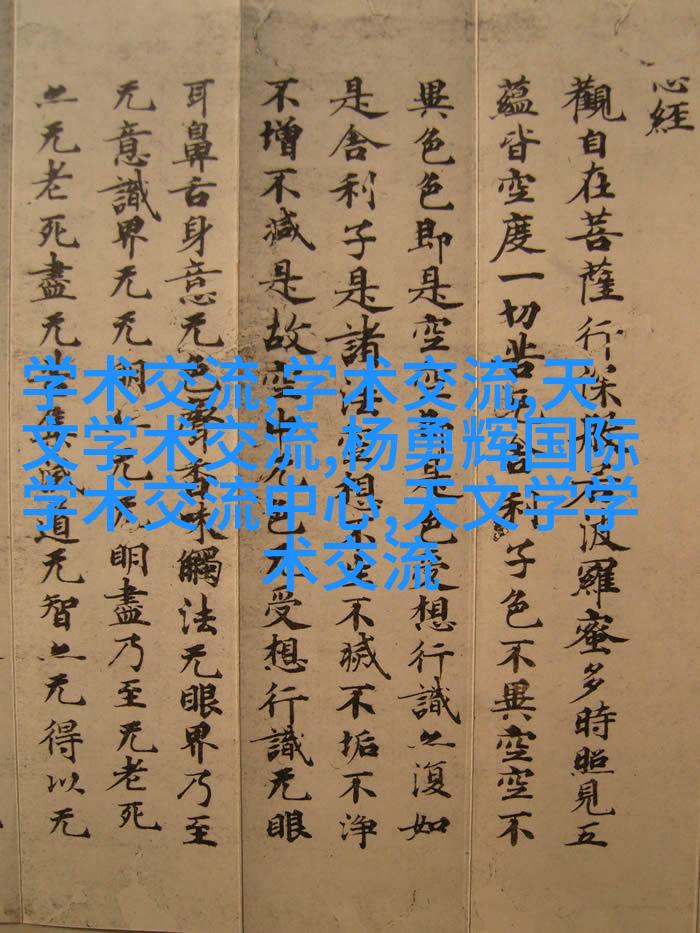 心經
觀自在菩薩行深般若波羅蜜多時照見五
蘊皆空度一切苦厄舍利子色不異空空不
異色色即是空空即是色受想行識亦復如
是舍利子是諸法空想不生不滅不垢不淨
不增不減是故空中无色无受想行識无眼
耳鼻舌身意无色聲香味觸法无眼界乃至
无意識界无无明亦无无明盡乃至无老死
亦无老死盡无苦集滅道无智亦无得以无
学术交流,学术交流,天
文学术交流,杨勇辉国际
学术交流中心,天文学学
术交流